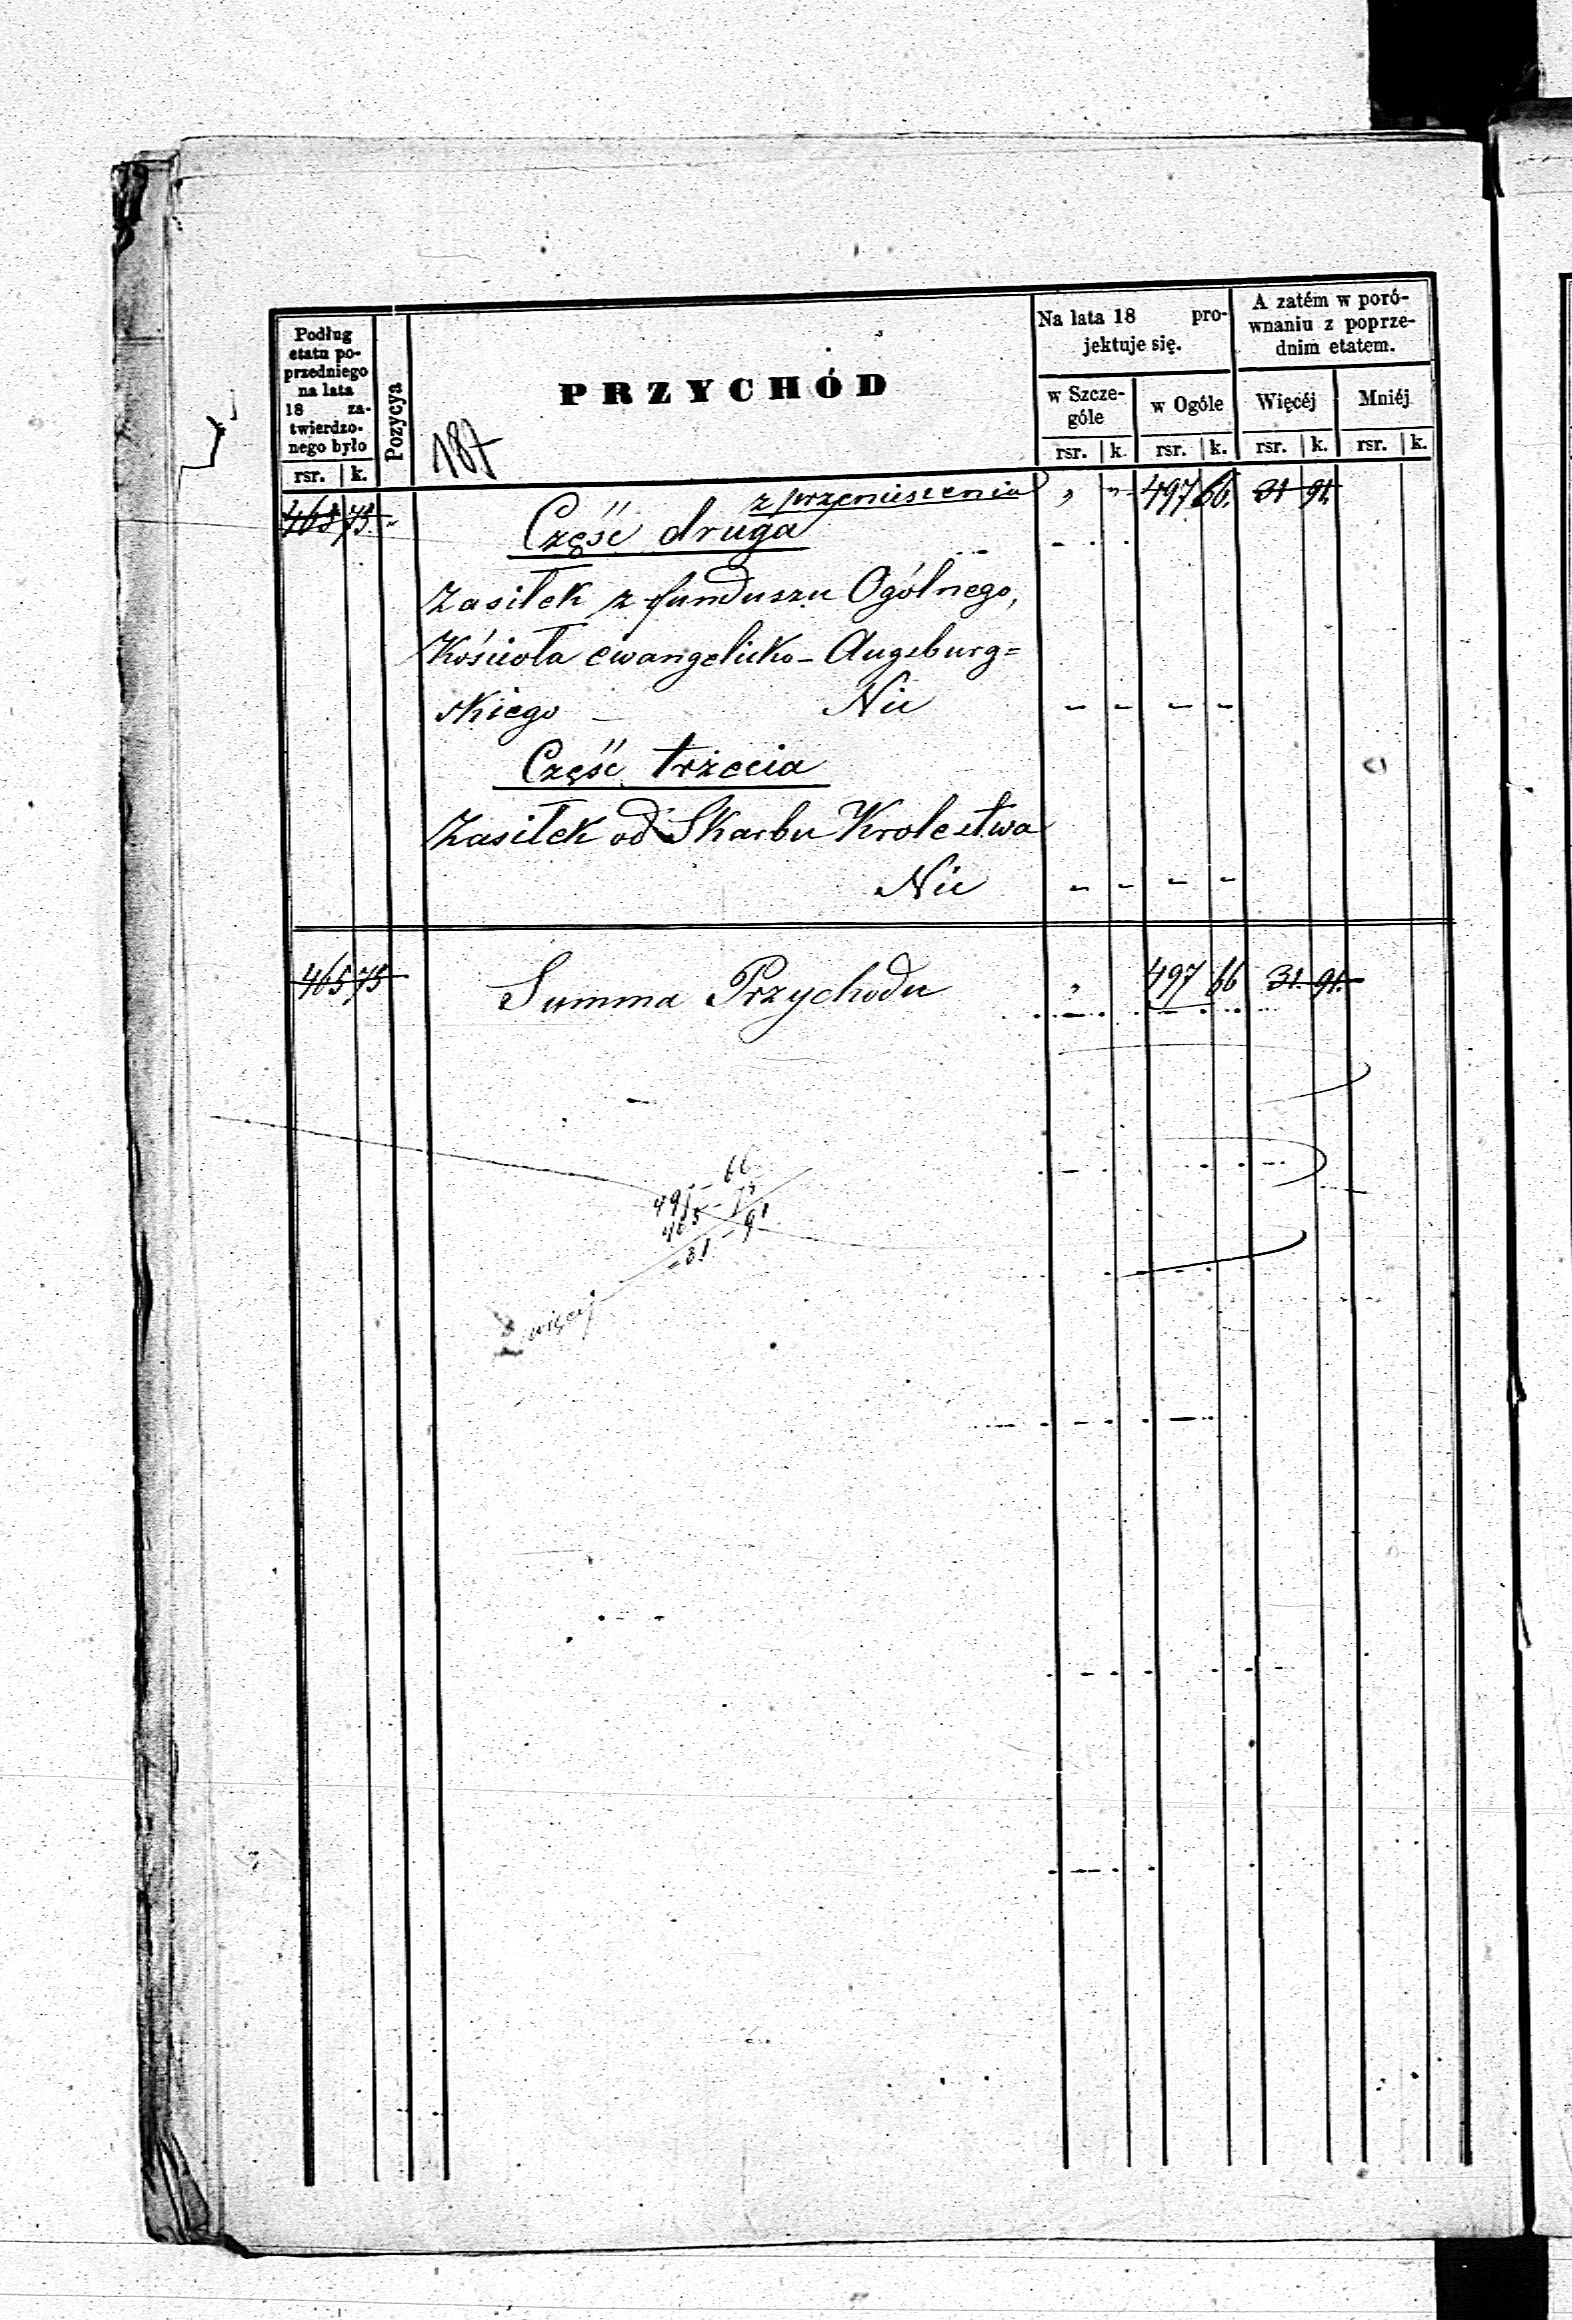 Podług
etatu po-
przedniego
na lata
18 za-
twierdzo-
nego było
rsr. k.
Pozycya
PRZYCHÓD
187
Na lata 18 pro-
jektuje się.
w Szcze-
góle
rsr. k.
w Ogóle
rsr. k.
A zatém w poró-
wnaniu z poprze-
dnim etatem.
Więcéj
rsr. k.
Mniéj
rsr. k.
465 75 z przeniesienia " " 497 66. 31 91.
Część druga
Zasiłek z funduszu Ogólnego,
Kościoła ewangelicko-Augsburg=
skiego — Nic - - - -
Część trzecia
Zasiłek od Skarbu Krolestwa
Nic - - - -
465 75 Summa Przychodu " 497 66 31. 91.
497 - 66
465 - 75
= 31 - 91
więcej